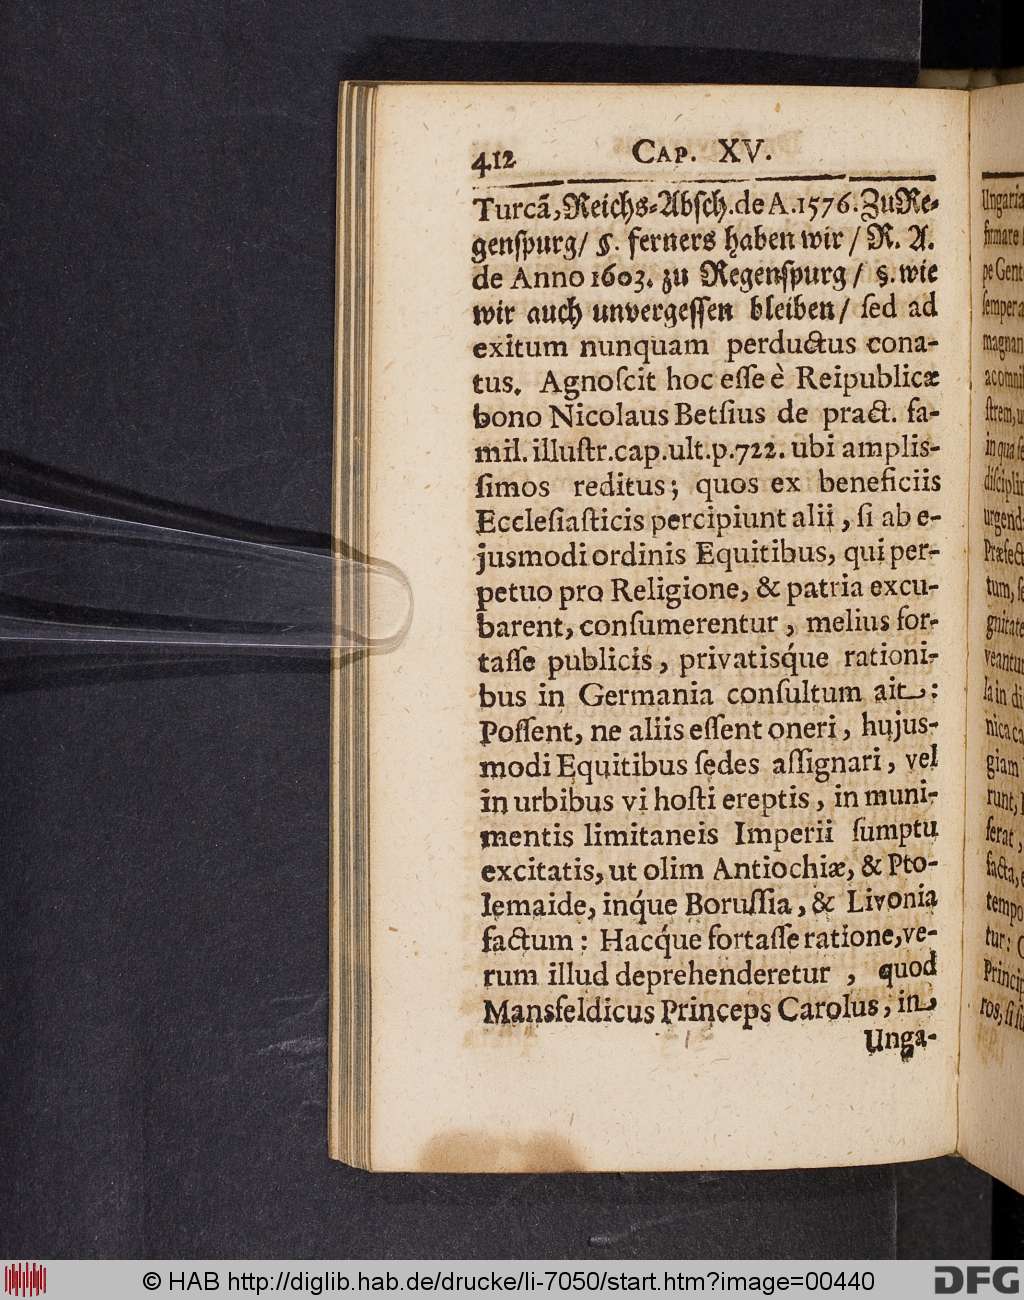 412 CAP. XV.
Turcã, Reichs-Absch. de A. 1576. Zu Re-
genspurg/ §. ferners haben wir / R. A.
de Anno 1603. zu Regenspurg / §. wie
wir auch unvergessen bleiben / ſed ad
exitum nunquam perductus cona-
tus. Agnoſcit hoc eſſe è Reipublicæ
bono Nicolaus Betſius de pract. fa-
mil. illuſtr. cap. ult. p. 722. ubi ampliſ-
ſimos reditus; quos ex beneficiis
Eccleſiaſticis percipiunt alii, ſi ab e-
jusmodi ordinis Equitibus, qui per-
petuo pro Religione, & patria excu-
barent, conſumerentur, melius for-
taſſe publicis, privatisq́ue rationi-
bus in Germania conſultum ait:
Poſſent, ne aliis eſſent oneri, hujus-
modi Equitibus ſedes aſſignari, vel
in urbibus vi hoſti ereptis, in muni-
mentis limitaneis Imperii ſumptu
excitatis, ut olim Antiochiæ, & Pto-
lemaide, inq́ue Boruſſia, & Livonia
factum: Hacq́ue fortaſſe ratione, ve-
rum illud deprehenderetur, quod
Mansfeldicus Princeps Carolus, in
Unga-
Ungaria
firmare
pe Gent
ſemper a
magnan
ſtrem, u
in qua ſe
diſciplin
urgend
Præfect
tum, ſe
gnitate
veantur
la in di
nica ca
giam
runt,
ferat,
facta, e
tempo
tur:
Princip
ros, ſi ſu
© HAB http://diglib.hab.de/drucke/li-7050/start.htm?image=00440
DFG